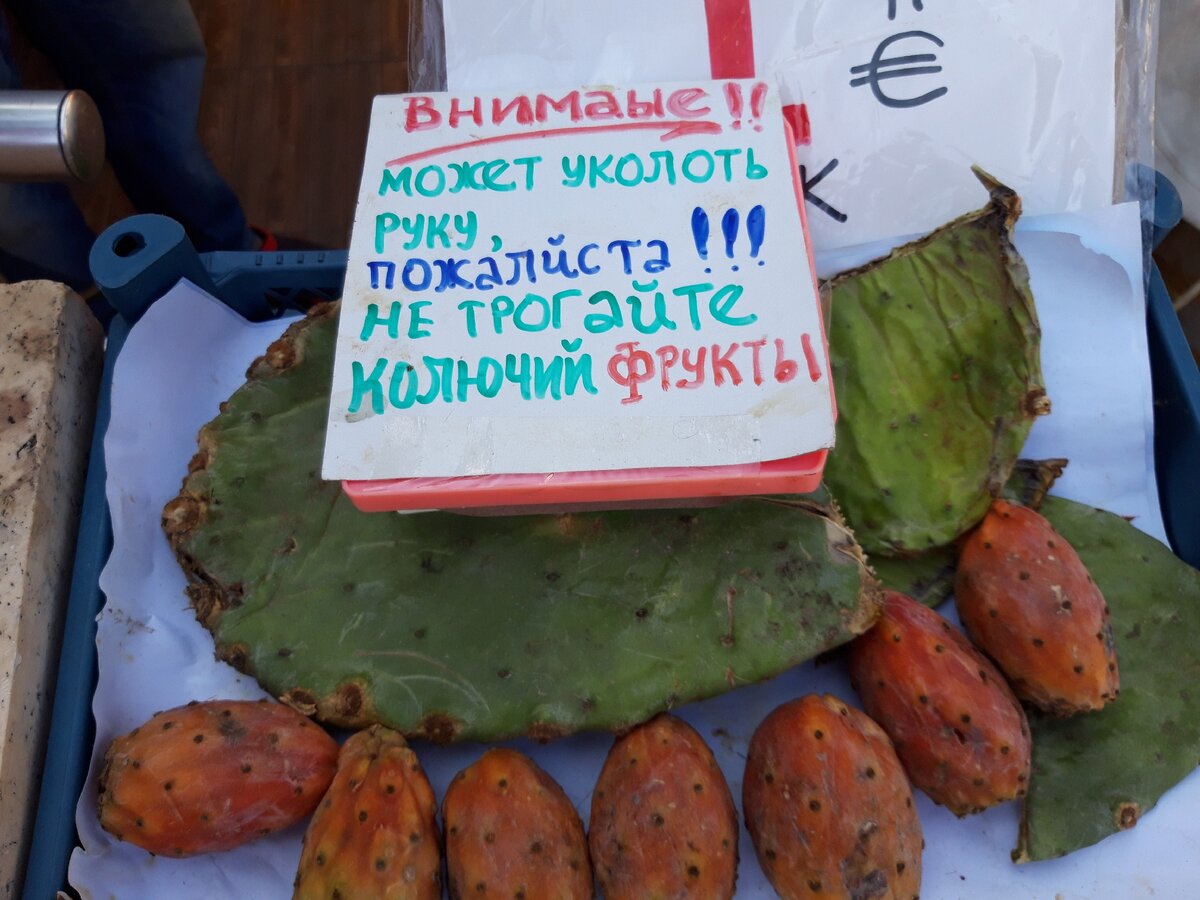 €
К
ВНИМАЫЕ!!
МОЖЕТ УКОЛОТЬ
РУКУ,
ПОЖАЛЙСТА!!!
НЕ ТРОГАЙТЕ
КОЛЮЧИЙ ФРУКТЫ